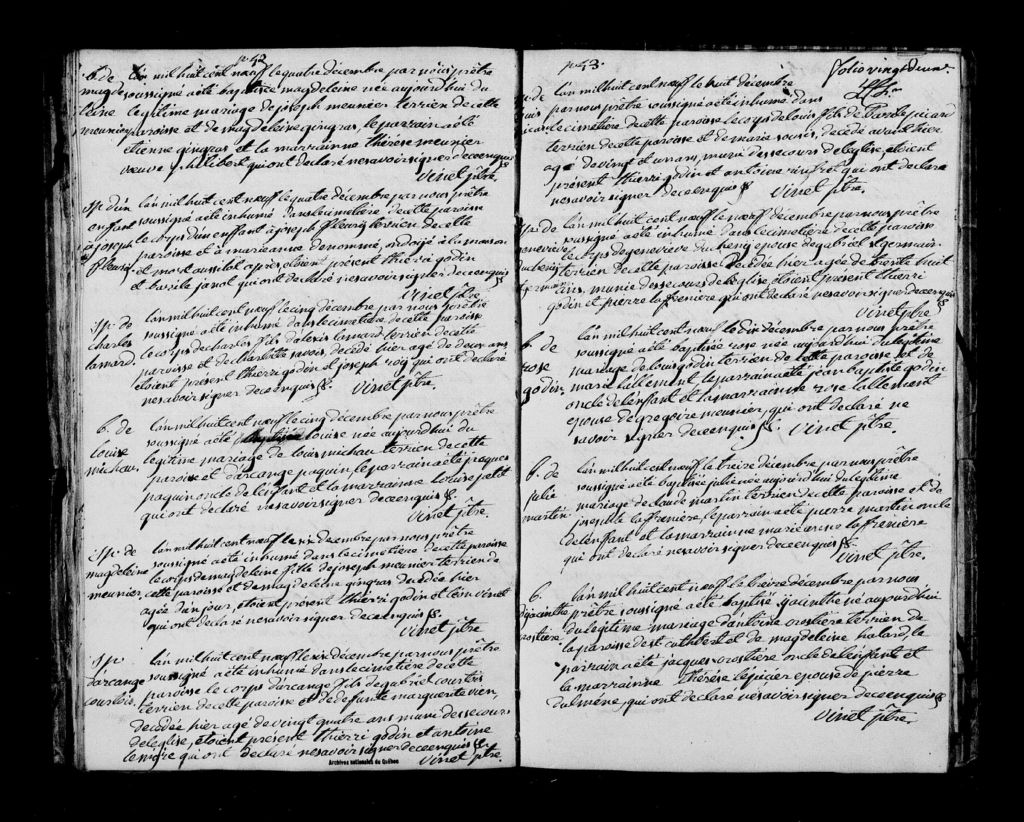 p. 42
b. de l'an mil huit cent noeuff le quatre décembre par nous prêtre
magde soussigné a été baptisée magdeleine née aujourd'hui du
leine legitime mariage de joseph meunier terrien de cette
meunier paroisse et de magdeleine gingras, le parrain a été
etienne gingras et la marrainne Thérèse meunier
voeuve qui ont declaré ne savoir signer de ce enquis
vinet ptre.
Sp. d'un l'an mil huit cent noeuff le quatre décembre par nous prêtre
enffant soussigné a été inhumé dans le cimetière de cette paroisse
à joseph le corps d'un enffant à joseph terrien de cette
paroisse et à marieanne denommé, ondoijé à la maison
et mort aussitot après, etoient présent thierri godin
et basile qui ont declaré ne savoir signer de ce enquis
vinet ptre.
Sp. de l'an mil huit cent noeuff le cinq décembre par nous prêtre
charles soussigné a été inhumé dans le cimetière de cette paroisse
le corps de charles fils d'alexis terrien de cette
paroisse et de charlotte decédé hier agé de deux ans
etoient présent thierri godin et joseph roij qui ont declaré
ne savoir signer de ce enquis vinet ptre.
b. de l'an mil huit cent noeuff le cinq décembre par nous prêtre
louise soussigné a été baptisée louise née aujourd'hui du
michau legitime mariage de louis michau terrien de cette
paroisse et d'arcange paquin, le parrain a été jacques
paquin oncle de l'enffant et la marrainne louise petit
qui ont declaré ne savoir signer de ce enquis
vinet ptre.
Sp. de l'an mil huit cent noeuff le six décembre par nous prêtre
magdeleine soussigné a été inhumé dans le cimetière de cette paroisse
meunier le corps de magdeleine fille de joseph meunier terrien de
cette paroisse et de magdeleine gingras decedée hier
agée d'un jour, etoient présent thierri godin et vinet
qui ont declaré ne savoir signer de ce enquis
vinet ptre
Sp. l'an mil huit cent noeuff le six décembre par nous prêtre
d'arcange soussigné a été inhumé dans le cimetière de cette
courtois paroisse le corps d'arcange fils de gabriel courtois
terrien de cette paroisse et de deffunte marguerite vien,
decedée hier agé de vingt quatre ans muni des secours
de l'eglise, etoient présent thierri godin et antoine
lemire qui ont declaré ne savoir signer de ce enquis
vinet ptre.
Archives nationales du Québec
p. 43.
folio vingt deux.
Sp. de l'an mil huit cent noeuff le huit décembre
louis par nous prêtre soussigné a été inhumé dans
picard le cimetière de cette paroisse le corps de louis fils de picard
terrien de cette paroisse et de marie decédé avant hier
agé de vingt et un ans, muni des secours de l'eglise, etoient
présent thierri godin et antoine qui ont declaré
ne savoir signer de ce enquis vinet ptre.
Sp. de l'an mil huit cent noeuff le noeuff décembre par nous prêtre
genevieve soussigné a été inhumé dans le cimetière de cette paroisse
le corps de genevieve epouse de gabriel st germain
terrien de cette paroisse decedée hier agée de trente huit
ans, munie des secours de l'eglise, etoient présent thierri
godin et pierre laffreniere qui ont declaré ne savoir signer de ce enquis
vinet ptre.
b. de l'an mil huit cent noeuff le dix décembre par nous prêtre
rose soussigné a été baptisée rose née aujourd'hui du legitime
godin mariage de louis godin terrien de cette paroisse et de
marie lallement le parrain a été jean baptiste godin
oncle de l'enffant et la marrainne rose lallement
epouse de gregoire meunier, qui ont declaré ne
savoir signer de ce enquis vinet ptre.
b. de l'an mil huit cent noeuff le treize décembre par nous prêtre
julie soussigné a été baptisée julie née aujourd'hui du legitime
martin mariage de claude martin terrien de cette paroisse et de
laffrenière, le parrain a été pierre martin oncle
de l'enffant et la marrainne marie anne laffrenière
qui ont declaré ne savoir signer de ce enquis
vinet ptre.
b. l'an mil huit cent noeuff le treize décembre par nous
d'hjacinthe prêtre soussigné a été baptisé hjacinthe né aujourd'hui
du legitime mariage d'antoine terrien de
la paroisse de st cuthbert et de magdeleine halard, le
parrain a été jacques oncle de l'enffant et
la marrainne thérèse lepicier epouse de pierre
dulmène, qui ont declaré ne savoir signer de ce enquis
vinet ptre.